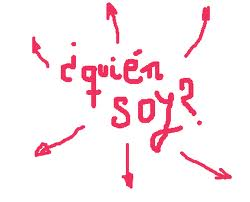 ¿quién
soy?.